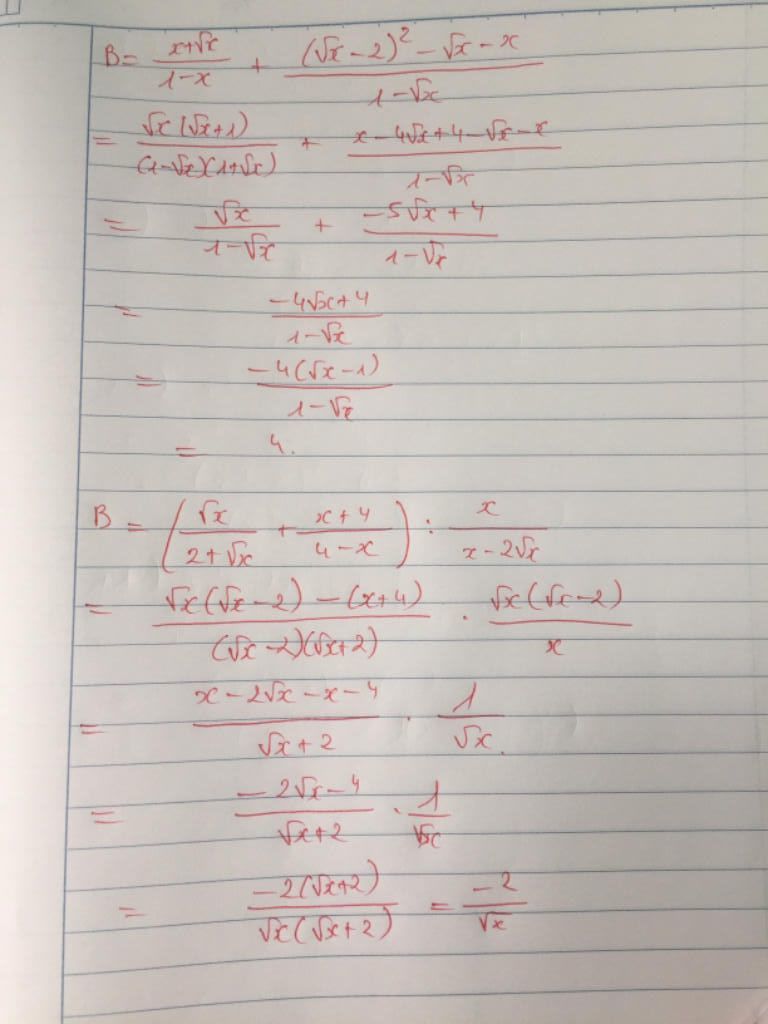 B = (x+√x)/(1-x) + ((√x-2)² - √x - x)/(1-√x)
= (√x(√x+1))/((1-√x)(1+√x)) + (x-4√x+4-√x-x)/(1-√x)
= √x/(1-√x) + (-5√x+4)/(1-√x)
= (-4√x+4)/(1-√x)
= (-4(√x-1))/(1-√x)
= 4.
B = (√x/(2+√x) + (x+4)/(4-x)) : x/(x-2√x)
= (√x(√x-2) - (x+4))/((√x-2)(√x+2)) . (√x(√x-2))/x
= (x-2√x-x-4)/(√x+2) . 1/√x.
= (-2√x-4)/(√x+2) . 1/√x
= (-2(√x+2))/(√x(√x+2)) = -2/√x